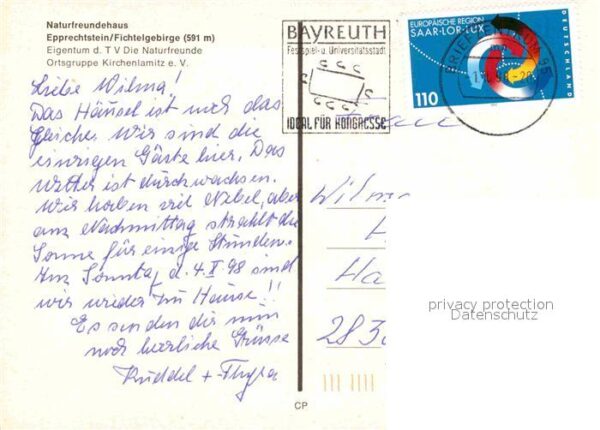 Naturfreundehaus
Epprechtstein/Fichtelgebirge (591 m)
Eigentum d. T V Die Naturfreunde
Ortsgruppe Kirchenlamitz e. V.
Liebe Wilma!
Das Häusel ist noch das
gleiche. Wir sind die
einzigen Gäste hier. Das
Wetter ist durchwachsen.
Wir haben viel Nebel, aber
am Nachmittag strahlt die
Sonne für einige Stunden.
Am Sonntag d. 4. 98 sind
wir wieder zu Hause!!
Es senden dir nun
noch herzliche Grüsse
CP
BAYREUTH
Festspiel- u. Universitätsstadt
IDEAL FÜR KONGRESSE
EUROPÄISCHE REGION
SAAR-LOR-LUX
DEUTSCHLAND
110
BRIEFZENTRUM 95
Frau
Wilm
H
Ha
283
privacy protection
Datenschutz